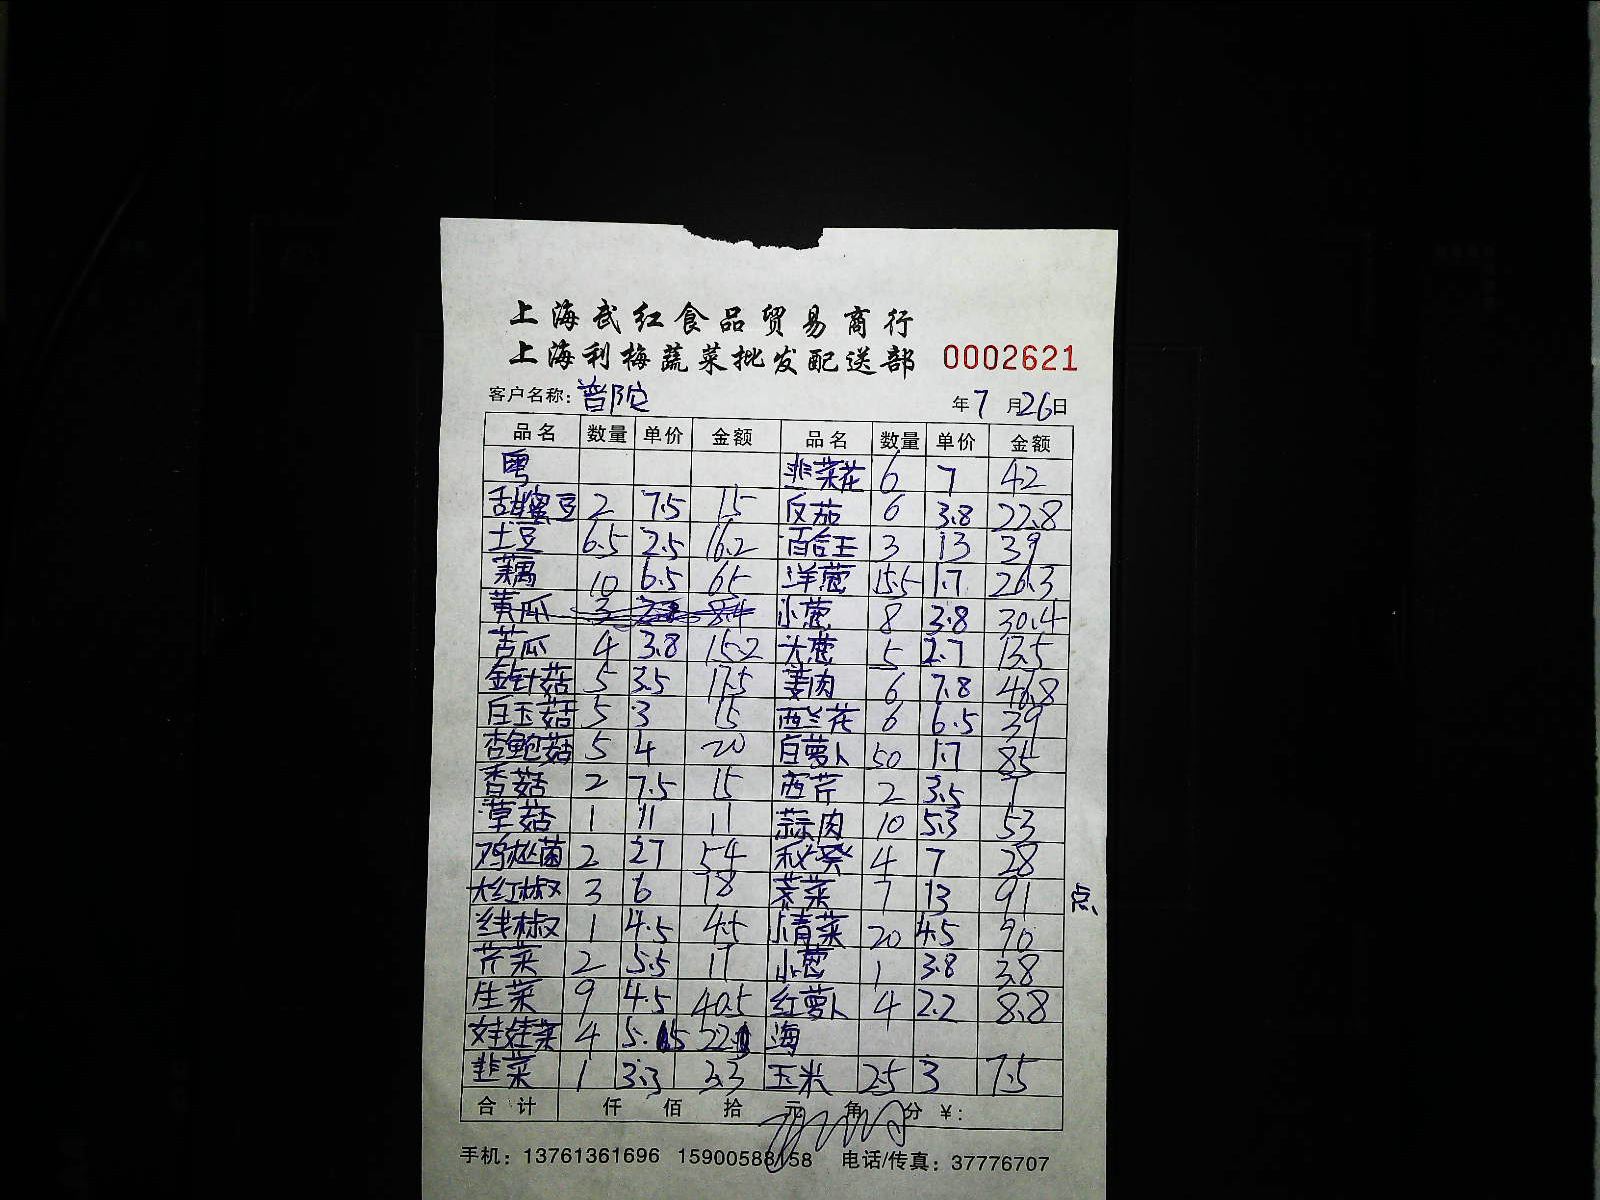 上海武红食品贸易商行
上海利梅蔬菜批发配送部 0002621
客户名称：普陀 年7月26日
品名 数量 单价 金额 品名 数量 单价 金额
粤 韭菜花 6 7 42
甜蜜豆 2 7.5 15 反茄 6 3.8 22.8
土豆 6.5 2.5 16.2 百合王 3 13 39
藕 10 6.5 65 洋葱 15.5 1.7 26.3
黄瓜 3 8.4 小葱 8 3.8 30.4
苦瓜 4 3.8 15.2 大葱 5 2.7 13.5
金针菇 5 3.5 17.5 姜肉 6 7.8 46.8
白玉菇 5 3 15 西兰花 6 6.5 39
杏鲍菇 5 4 20 白萝卜 50 1.7 85
香菇 2 7.5 15 西芹 2 3.5 7
草菇 1 11 11 蒜肉 10 5.3 53
鸡枞菌 2 27 54 秋葵 4 7 28
大红椒 3 6 18 荠菜 7 13 91 点
线椒 1 4.5 4.5 小青菜 20 4.5 90
芹菜 2 5.5 11 小葱 1 3.8 3.8
生菜 9 4.5 40.5 红萝卜 4 2.2 8.8
娃娃菜 4 5. 5 22. 海
韭菜 1 3.3 3.3 玉米 2.5 3 7.5
合计 仟 佰 拾 元 角 分 ¥：
手机：13761361696 15900588158 电话/传真：37776707